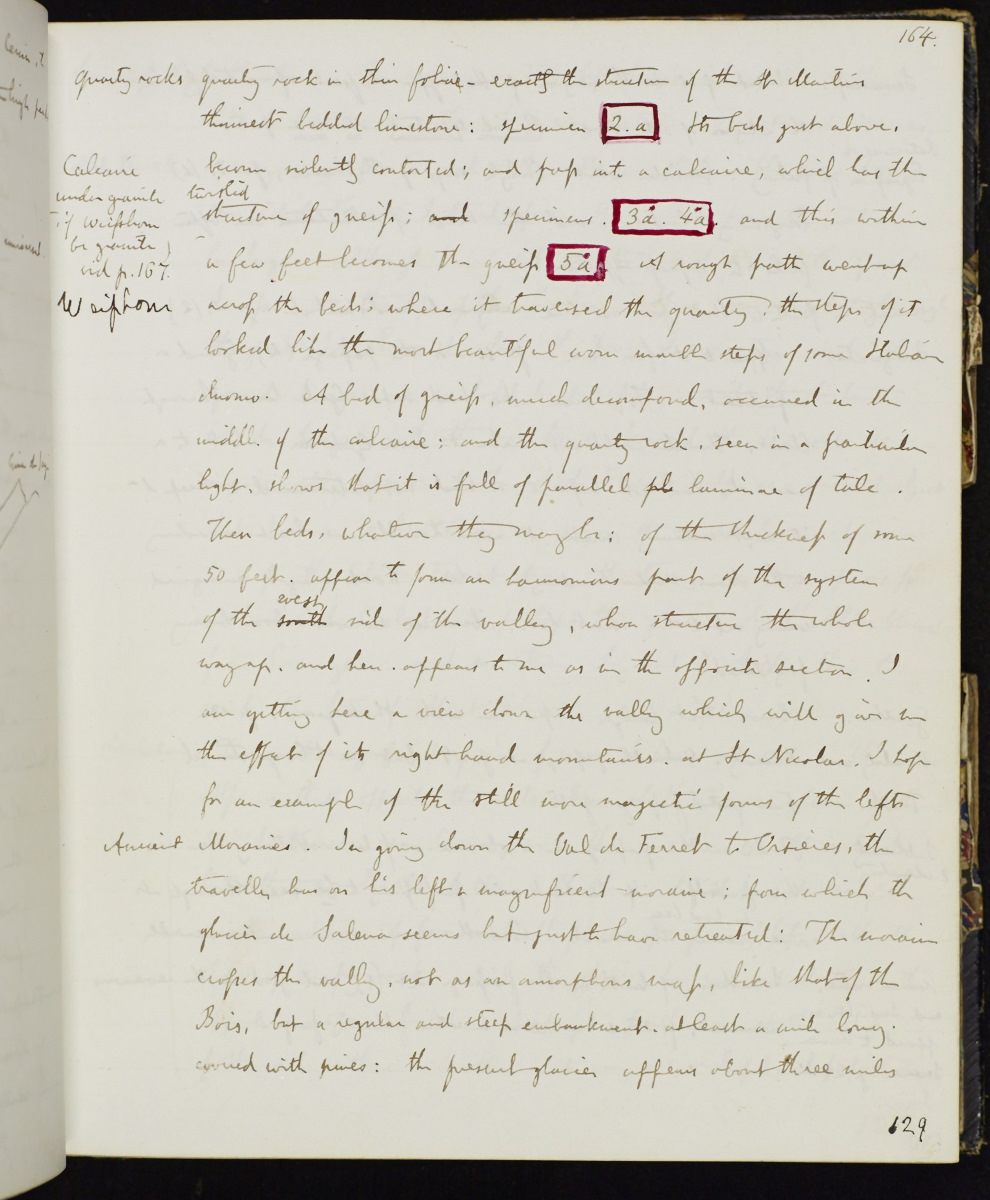 164.
Quartz rocks quartz rock in thin foliæ - exactly the structure of the St Martins
thinnest bedded limestone: specimen 2.a Its beds just above,
Calcaire become violently contorted; and pass into a calcaire, which has the
under granite
twisted
if Weisshorn structure of gneiss; and specimens. 3a. 4a. and this within
be granite
vid p. 167. a few feet becomes the gneiss 5a. A rough path went up
Weisshorn across the beds: where it traversed the quartz: the steps of it
looked like the most beautiful worn marble steps of some Italian
duomo. A bed of gneiss, much decomposed, occurred in the
middle of the calcaire: and the quartz rock, seen in a particular
light, shows that it is full of parallel pla laminae of talc.
These beds, whatever they may be; of the thickness of some
50 feet. appear to form an harmonious part of the system
west
of the south side of the valley, whose structure the whole
way up. and here. appears to me as in the opposite section. I
am getting here a view down the valley which will give me
the effect of its right hand mountains. at St Nicolas. I hope
for an example of the still more majestic forms of the lefts
Ancient Moraines. In going down the Val de Ferret to Orsieres, the
traveller has on his left a magnificent moraine; from which the
glacier de Salena seems but just to have retreated: The moraine
crosses the valley, not as an amorphous mass, like that of the
Bois, but a regular and steep embankment. at least a mile long.
covered with pines: the present glacier appears about three miles
129